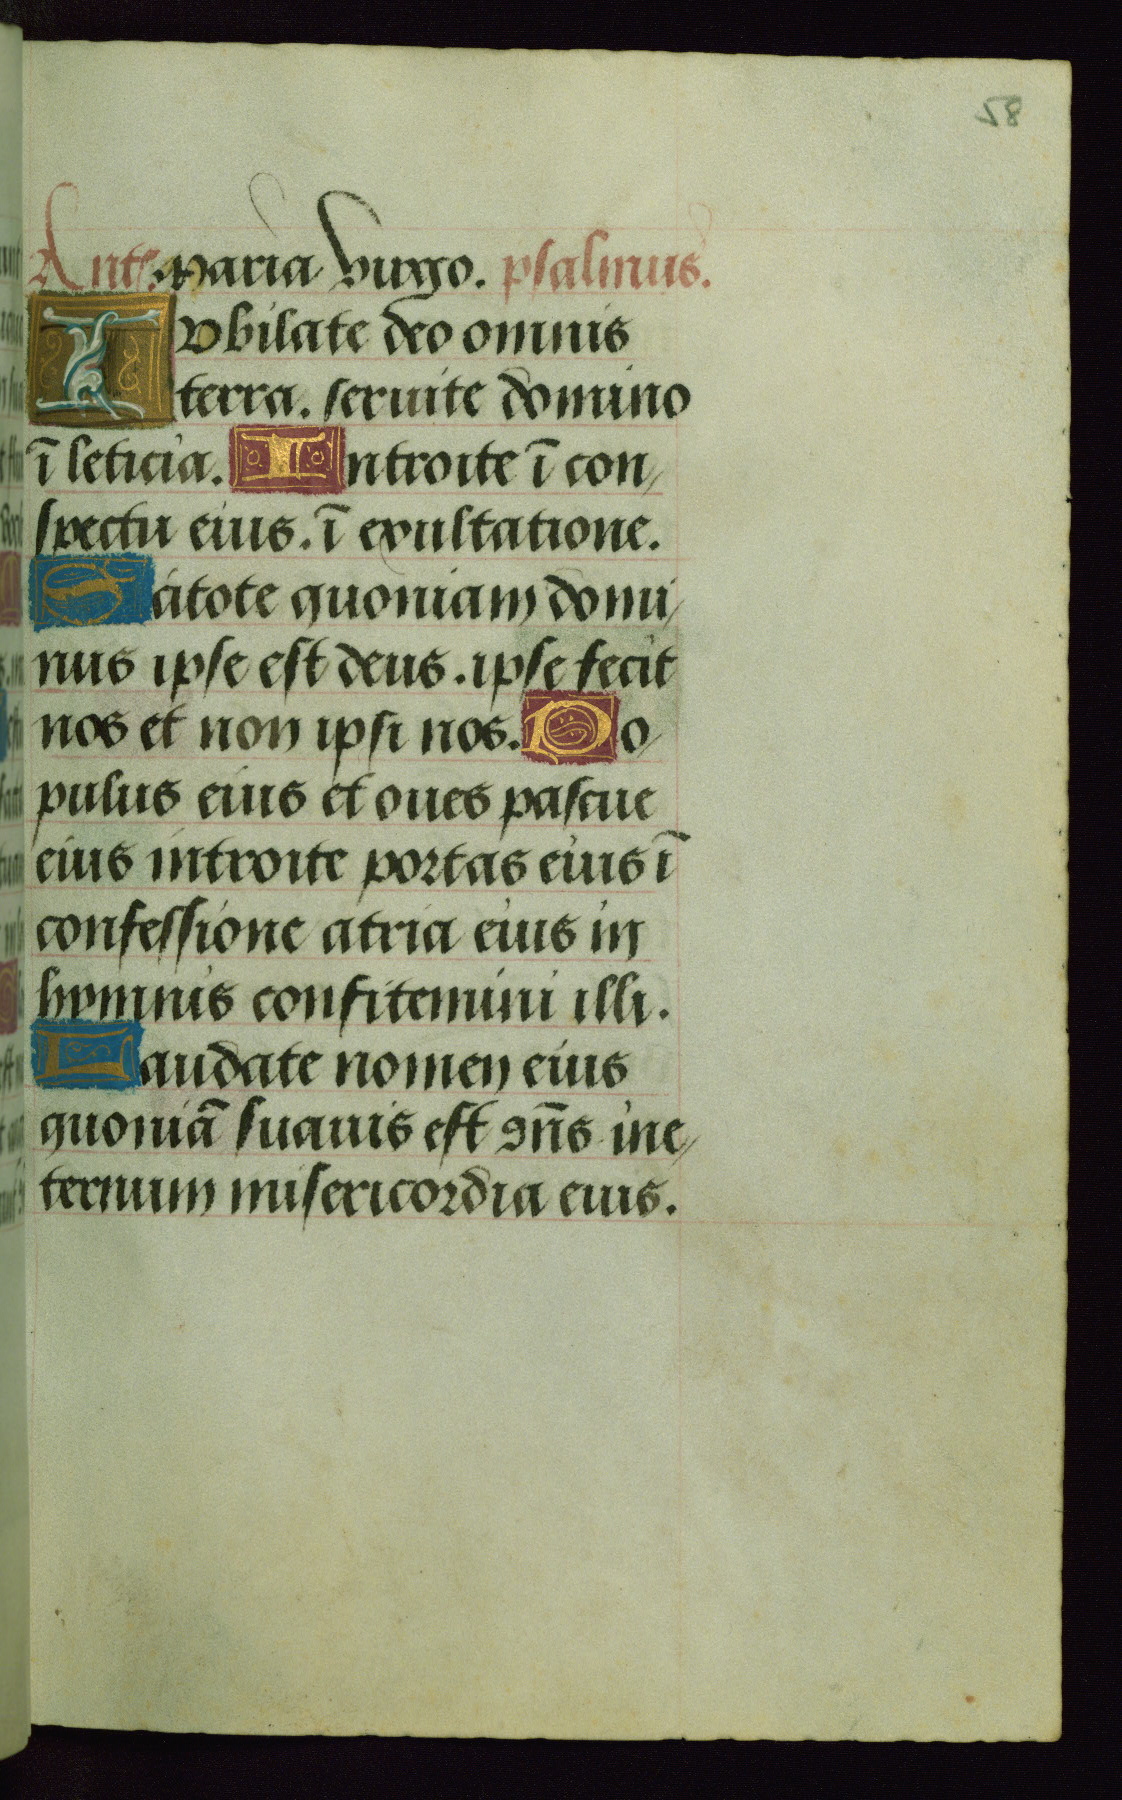 58
Ante. Maria virgo. psalmus.
IVbilate deo omnis
terra. seruite domino
ī leticia. Introite ī con,
spectu eius. ī exultatione.
Scitote quoniam domi,
nus ipse est deus. ipse fecit
nos et non ipsi nos. Po,
pulus eius et oues pascue
eius introite portas eius ī
confessione atria eius in
hymnis confitemini illi.
Laudate nomen eius
quoniā suauis est dn̄s in e,
ternum misericordia eius.